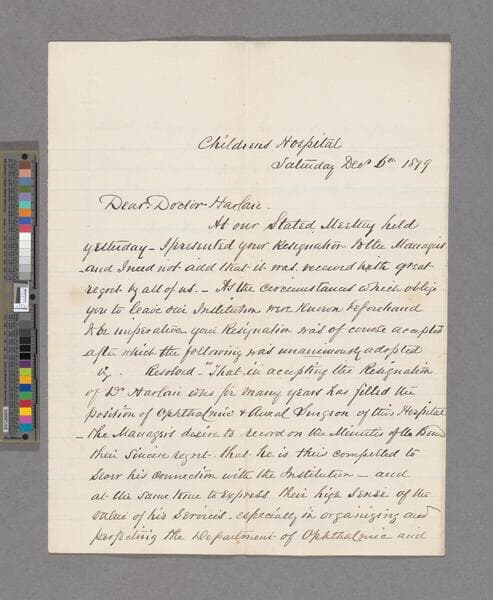 Childrens Hospital
Saturday Decr 6th 1879
Dear Doctor Harlan -
At our Stated Meeting held
yesterday - I presented your Resignation to the Managers
- and I need not add that it was received with great
regret by all of us. - As the circumstances which oblige
you to leave our Institution were known beforehand
to be imperative your Resignation was of course accepted
after which the following was unanimously adopted
viz. Resolved - "That in accepting the Resignation
of Dr Harlan who for many years has filled the
position of Ophthalmic & Aural Surgeon of this Hospital
- the Managers desire to record on the Minutes of the Board
their Sincere regret that he is thus compelled to
Sever his connection with the Institution - and
at the same time to express their high Sense of the
value of his Services - especially in organizing and
perfecting the Department of Ophthalmic and